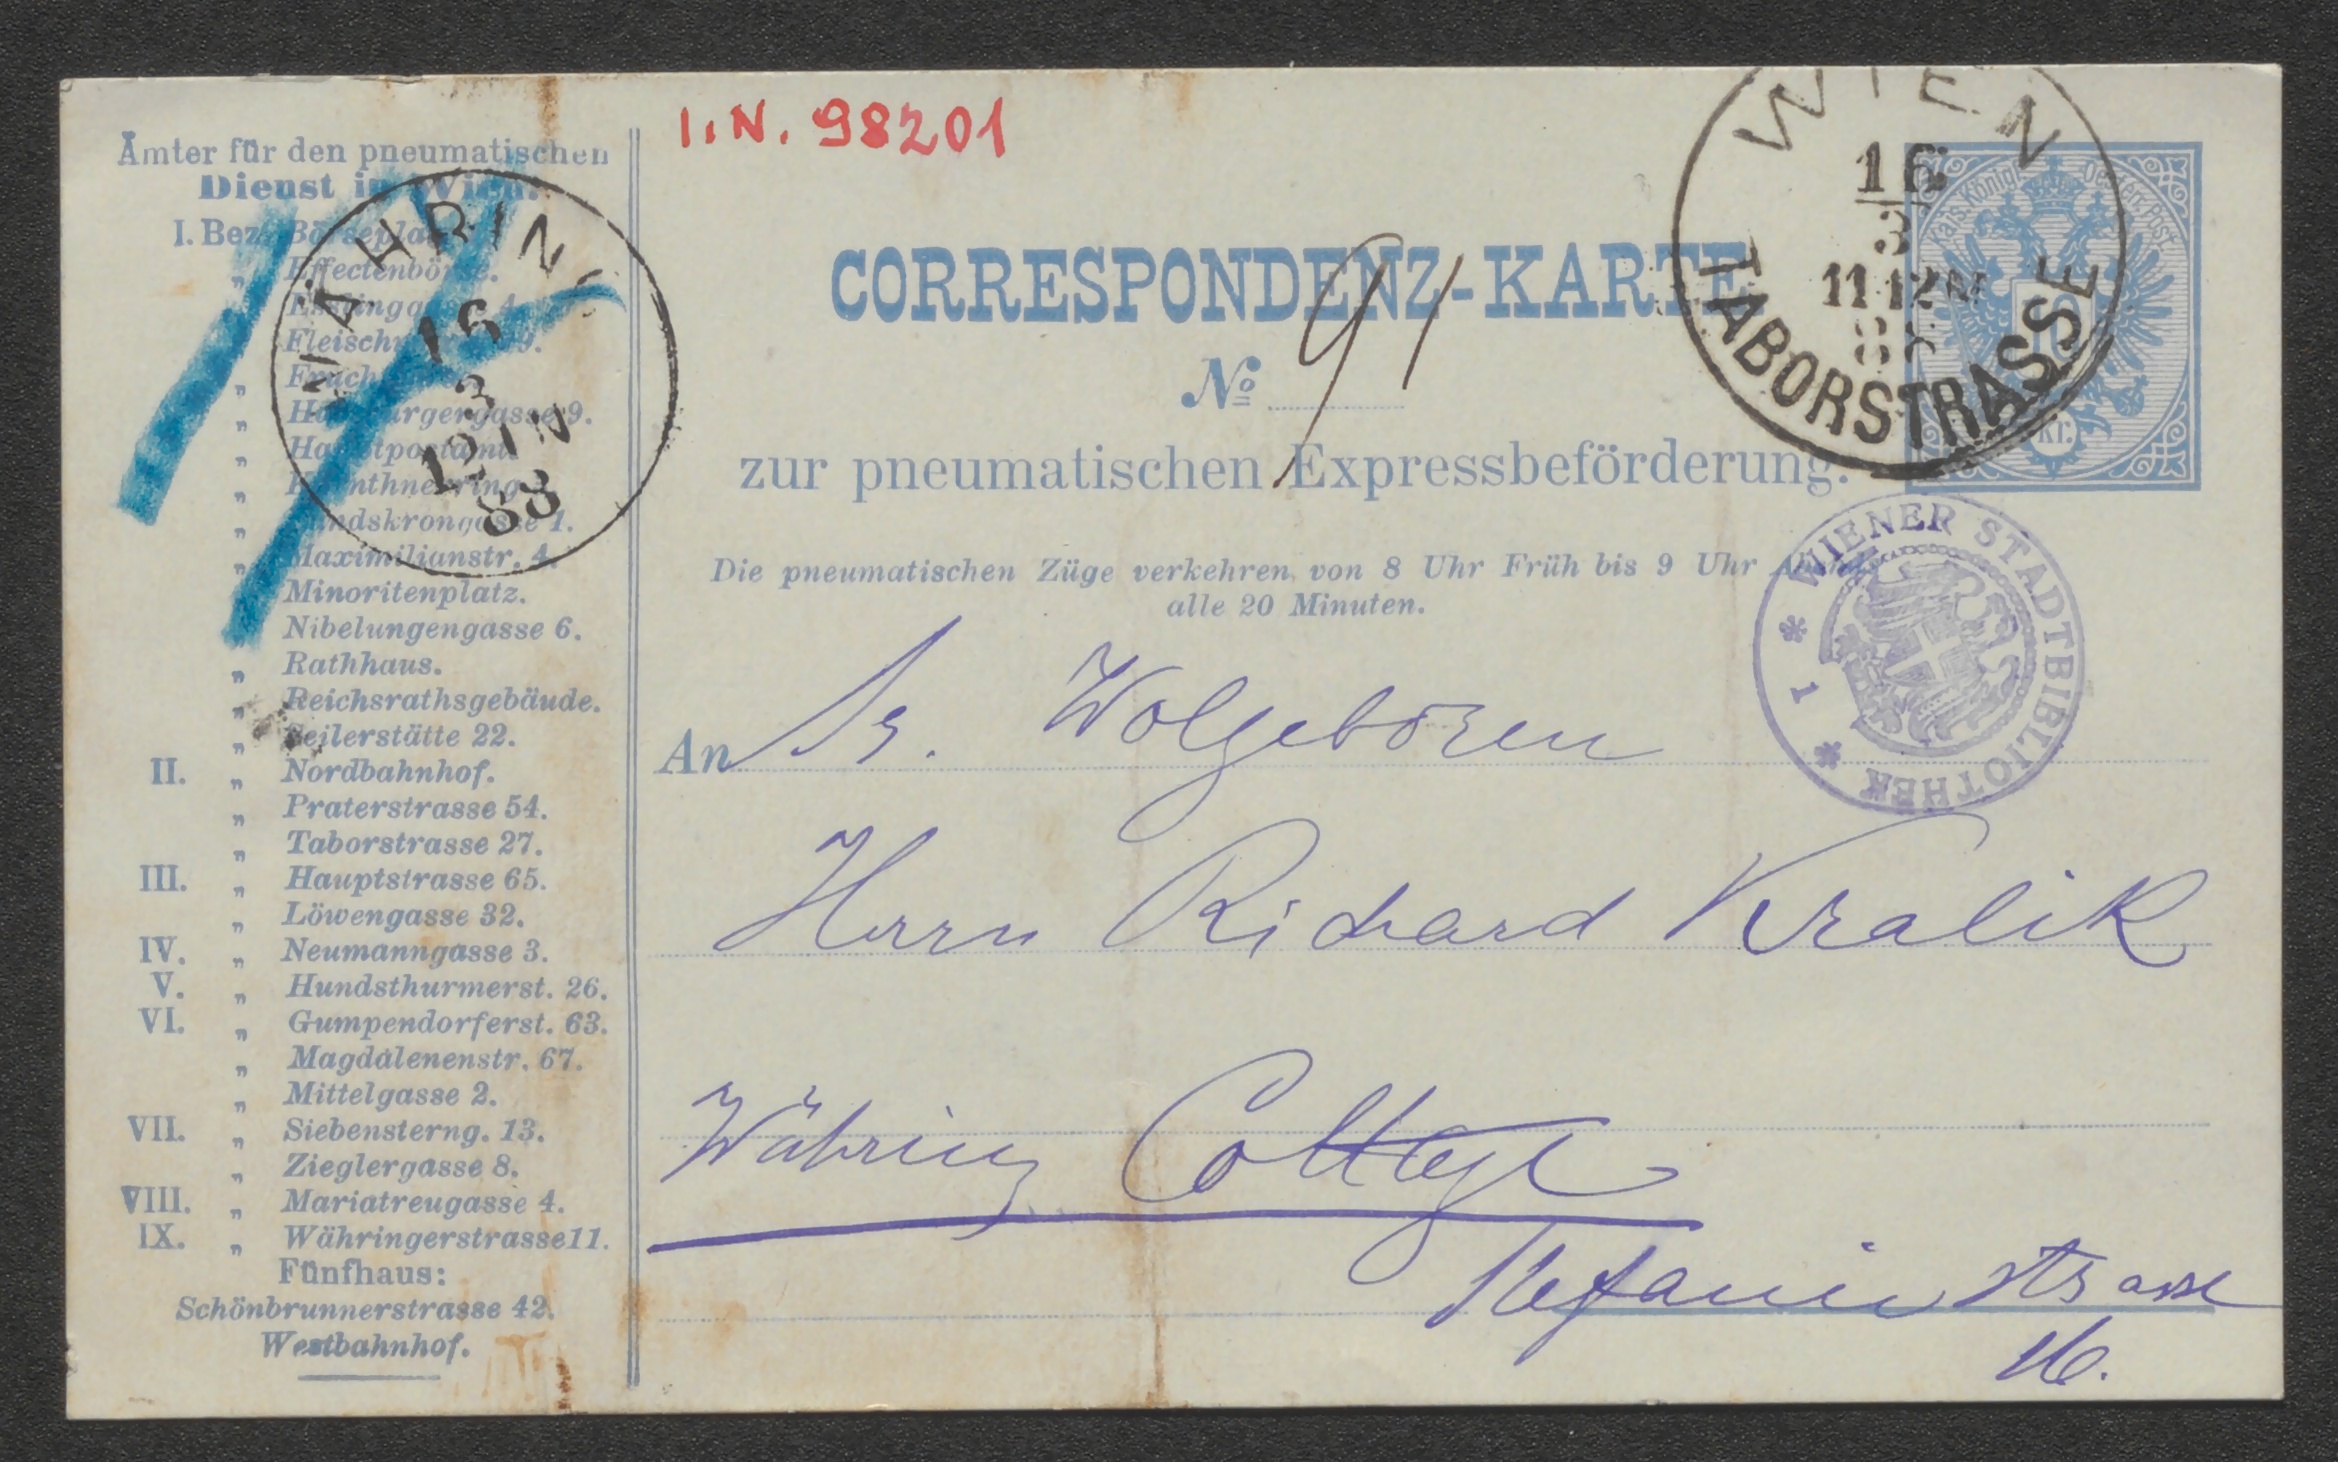 Ämter für den pneumatischen
Dienst in Wien.
I. Bez. Börseplatz
„ Effectenbörse.
„ Esslinggasse 4.
„ Fleischmarkt 19.
„
„ Habsburgergasse 9.
„ Hauptpostamt.
„ Kärnthnerring
„ Landskrongasse 1.
„ Maximilianstr. 4.
„ Minoritenplatz.
„ Nibelungengasse 6.
„ Rathhaus.
„ Reichsrathsgebäude.
„ Seilerstätte 22.
II. „ Nordbahnhof.
„ Praterstrasse 54.
„ Taborstrasse 27.
III. „ Hauptstrasse 65.
„ Löwengasse 32.
IV. „ Neumanngasse 3.
V. „ Hundsthurmerst. 26.
VI. „ Gumpendorferst. 63.
„ Magdalenenstr. 67.
„ Mittelgasse 2.
VII. „ Siebensterng. 13.
„ Zieglergasse 8.
VIII. „ Mariatreugasse 4.
IX. „ Währingerstrasse 11.
Fünfhaus:
Schönbrunnerstrasse 42.
Westbahnhof.
WÄHRING
16
3
12 1 N
88
I.N. 98201
CORRESPONDENZ-KARTE
No 91
zur pneumatischen Expressbeförderung.
Die pneumatischen Züge verkehren von 8 Uhr Früh bis 9 Uhr Abends
alle 20 Minuten.
WIEN
16
3
11 12 M
88
TABORSTRASSE
Kais. Königl. Oesterr. Post
10
kr.
WIENER STADTBIBLIOTHEK * 1 *
An Sr. Wolgeboren
Herrn Richard Kralik
Währing Cottage
Stefanie strasse
16.